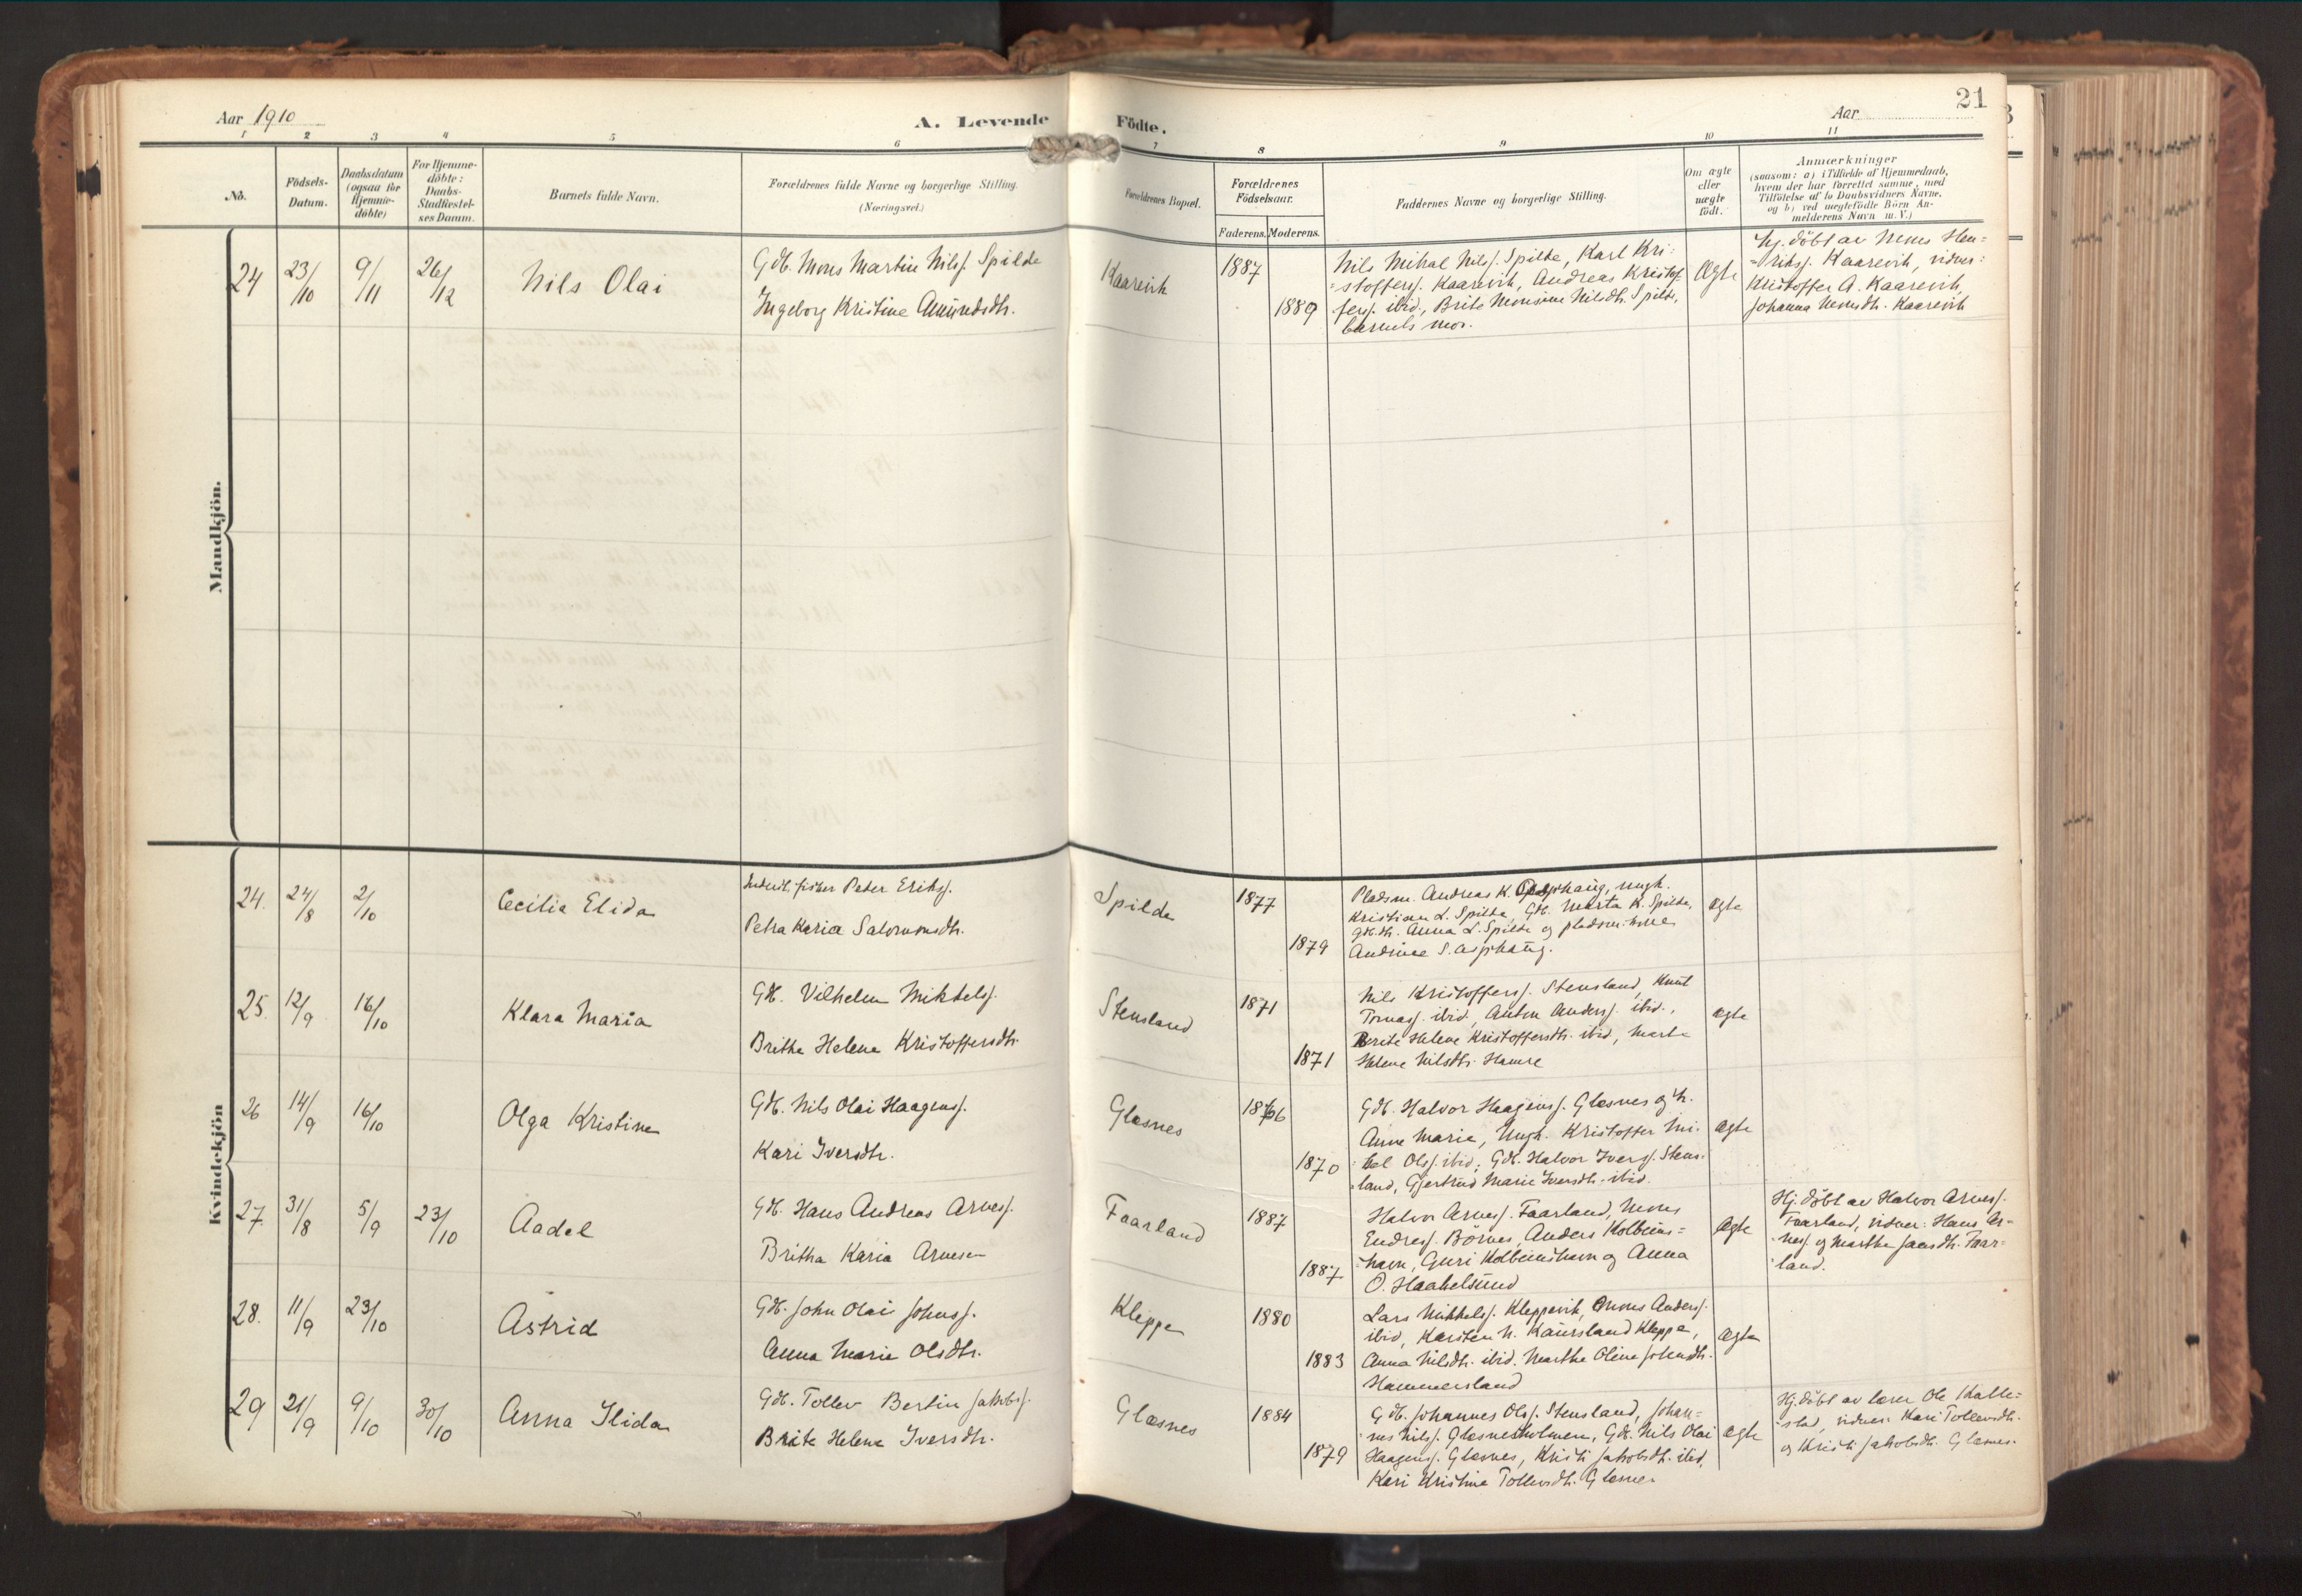 Aar 1910
A. Levende
Födte.
Aar
21
1 2 3 4 5 6 7 8 9 10 11
No.
Födsels-
Datum.
Daabsdatum
(ogsaa for
Hjemme-
döbte)
For Hjemme-
döbte:
Daabs-
Stadfæstel-
ses Datum.
Barnets fulde Navn.
Forældrenes fulde Navne og borgerlige Stilling.
(Næringsvei.)
Forældrenes Bopæl.
Forældrenes
Födselsaar.
Faderens. Moderens.
Faddernes Navne og borgerlige Stilling.
Om ægte
eller
uægte
födt.
Anmærkninger
(saasom: a) i Tilfælde af Hjemmedaab,
hvem der har forrettet samme, med
Tilföielse af to Daabsvidners Navne,
og b) ved uægtefödte Börn An-
melderens Navn m. V.)
Mandkjön.
24 23/10 9/11 26/12 Nils Olai
Gdb. Mons Martin Nilss. Spilde
Ingeborg Kristine Amundsdtr.
Kaarevik
1887
1889
Nils Mikal Nilss. Spilde, Karl Kri-
=stoffers. Kaarevik, Andreas Kristof-
fers. ibid., Brite Monsine Nilsdtr. Spilde,
barnets mor.
Ægte
Hj. döbt av Mons Hen=
=riks. Kaarevik, vidner:
Kristoffer A. Kaarevik,
Johanna Monsdtr. Kaarevik
Kvindekjön
24. 24/8 2/10 Cecilie Elida
fisker Peter Eriks.
Petra Karia Salomonsdtr.
Spilde
1877
1879
Pladsm. Andreas K. Opphaug, ungk.
Kristian L. Spilde, Gk. Marta K. Spilde,
gdb.dtr. Anna L. Spilde og pladsm. kone
Andrine S. Asphaug.
ægte
25. 12/9 16/10 Klara Maria
Gdb. Vilhelm Mikkels.
Brithe Helene Kristoffersdtr.
Stensland
1871
1871
Nils Kristoffers. Stensland, Knut
Tomas. ibid., Anton Anders. ibid.,
Brite Helene Kristoffersdtr. ibid, Marta
Helene Nilsdtr. Hamre
ægte
26 14/9 16/10 Olga Kristine
Gdb. Nils Olai Haagens.
Kari Iversdtr.
Glæsnes
1866
1870
Gdb. Halvor Haagens. Glæsnes og h.
Anne Marie, Ungk. Kristoffer Mi-
kel Ols. ibid; Gdb. Halvor Ivers. Stens-
land, Gjertrud Marie Iversdtr. ibid.
ægte
27 31/8 5/9 23/10 Aadel
Gdb. Hans Andreas Arnes.
Britha Karia Arnesen
Faarland
1887
1887
Halvor Arnes. Faarland, Mons
Endres. Börnes, Anders Kolbeins=
=havn, Guri Kolbeinshavn og Anna
O. Haakelsund
Ægte
Hj. döbt av Halvor Arnes.
Faarland, vidner: Hans Ar-
nes. og Marthe Jansdtr. Faar=
land.
28. 11/9 23/10 Astrid
Gdb. John Olai Johns.
Anna Marie Olsdtr.
Kleppe
1880
1883
Lars Mikkels. Kleppevik, Mons Anders.
ibid, Karsten N. Kaursland Kleppe,
Anna Nilsdtr. ibid. Marthe Oline Johnsdtr.
Hammersland
Ægte
29 21/9 9/10 30/10 Anna Ilida
Gdb. Tollev Bertin Jakobs.
Brite Helene Iversdtr.
Glæsnes
1884
1879
Gdb. Johannes Ols. Stensland, Johan-
nes Nils. Glæsnesholmen, Gdb. Nils Olai
Haagens. Glæsnes, Kristi Jakobsdtr. ibid.
Kari Kristine Tollevsdtr. Glæsnes
ægte
Hj. döbt av lærer Ole Kalle=
stad, vidner: Kari Tollevsdtr.
og Kristi Jakobsdtr. Glæsnes.